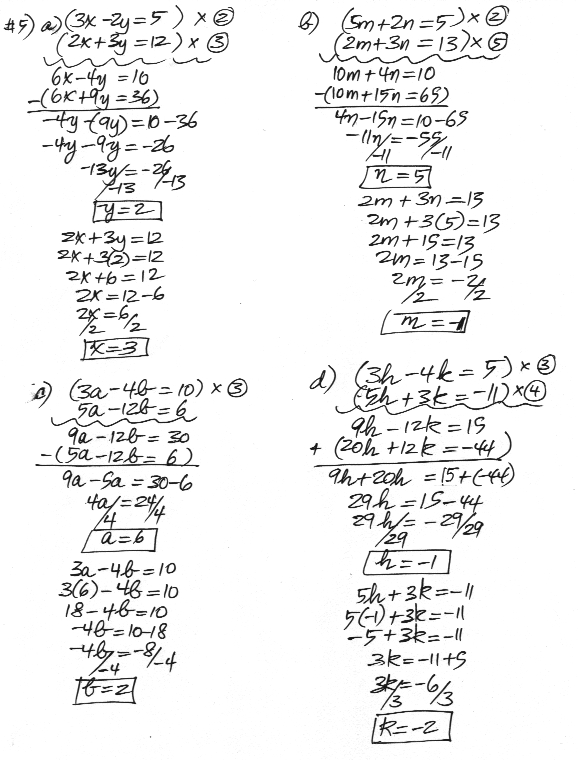 #5) a) (3x - 2y = 5) × ②
(2x + 3y = 12) × ③
6x - 4y = 10
-(6x + 9y = 36)
-4y -(9y) = 10 - 36
-4y - 9y = -26
-13y/-13 = -26/-13
y = 2
2x + 3y = 12
2x + 3(2) = 12
2x + 6 = 12
2x = 12 - 6
2x/2 = 6/2
x = 3
b) (5m + 2n = 5) × ②
(2m + 3n = 13) × ⑤
10m + 4n = 10
-(10m + 15n = 65)
4n - 15n = 10 - 65
-11n/-11 = -55/-11
n = 5
2m + 3n = 13
2m + 3(5) = 13
2m + 15 = 13
2m = 13 - 15
2m/2 = -2/2
m = -1
c) (3a - 4b = 10) × ③
5a - 12b = 6
9a - 12b = 30
-(5a - 12b = 6)
9a - 5a = 30 - 6
4a/4 = 24/4
a = 6
3a - 4b = 10
3(6) - 4b = 10
18 - 4b = 10
-4b = 10 - 18
-4b/-4 = -8/-4
b = 2
d) (3h - 4k = 5) × ③
(5h + 3k = -11) × ④
9h - 12k = 15
+ (20h + 12k = -44)
9h + 20h = 15 + (-44)
29h = 15 - 44
29h/29 = -29/29
h = -1
5h + 3k = -11
5(-1) + 3k = -11
-5 + 3k = -11
3k = -11 + 5
3k/3 = -6/3
k = -2